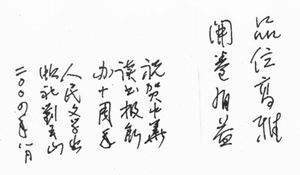 品位高雅
开卷有益
祝贺中华
读书报创
办十周年
人民文学出
版社刘玉山
二〇〇四年八月